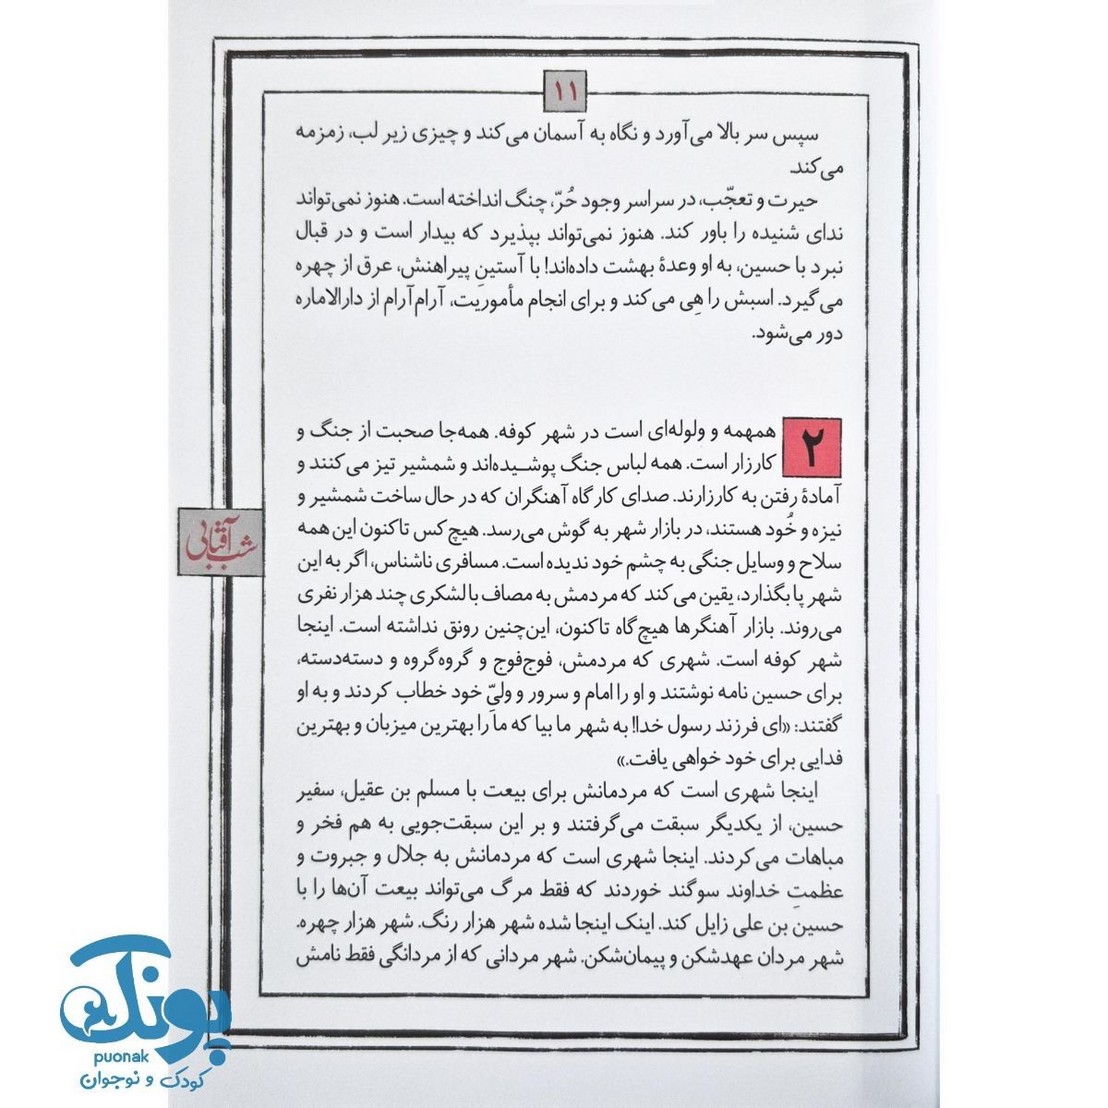 ۱۱
سپس سر بالا می‌آورد و نگاه به آسمان می‌کند و چیزی زیر لب، زمزمه
می‌کند.
حیرت و تعجّب، در سراسر وجود حُرّ، چنگ انداخته است. هنوز نمی‌تواند
ندای شنیده را باور کند. هنوز نمی‌تواند بپذیرد که بیدار است و در قبال
نبرد با حسین، به او وعدهٔ بهشت داده‌اند! با آستینِ پیراهنش، عرق از چهره
می‌گیرد. اسبش را هِی می‌کند و برای انجام مأموریت، آرام‌آرام از دارالاماره
دور می‌شود.
۲
همهمه و ولوله‌ای است در شهر کوفه. همه‌جا صحبت از جنگ و
کارزار است. همه لباس جنگ پوشیده‌اند و شمشیر تیز می‌کنند و
آمادهٔ رفتن به کارزارند. صدای کارگاه آهنگران که در حال ساخت شمشیر و
نیزه و خُود هستند، در بازار شهر به گوش می‌رسد. هیچ‌کس تاکنون این همه
سلاح و وسایل جنگی به چشم خود ندیده است. مسافری ناشناس، اگر به این
شهر پا بگذارد، یقین می‌کند که مردمش به مصاف با لشکری چند هزار نفری
می‌روند. بازار آهنگرها هیچ‌گاه تاکنون، این‌چنین رونق نداشته است. اینجا
شهر کوفه است. شهری که مردمش، فوج‌فوج و گروه‌گروه و دسته‌دسته،
برای حسین نامه نوشتند و او را امام و سرور و ولیِّ خود خطاب کردند و به او
گفتند: «ای فرزند رسول خدا! به شهر ما بیا که ما را بهترین میزبان و بهترین
فدایی برای خود خواهی یافت.»
اینجا شهری است که مردمانش برای بیعت با مسلم بن عقیل، سفیر
حسین، از یکدیگر سبقت می‌گرفتند و بر این سبقت‌جویی به هم فخر و
مباهات می‌کردند. اینجا شهری است که مردمانش به جلال و جبروت و
عظمتِ خداوند سوگند خوردند که فقط مرگ می‌تواند بیعت آن‌ها را با
حسین بن علی زایل کند. اینک اینجا شده شهر هزار رنگ. شهر هزار چهره.
شهر مردان عهدشکن و پیمان‌شکن. شهر مردانی که از مردانگی فقط نامش
شب آفتابی
پونک
puonak
کودک و نوجوان